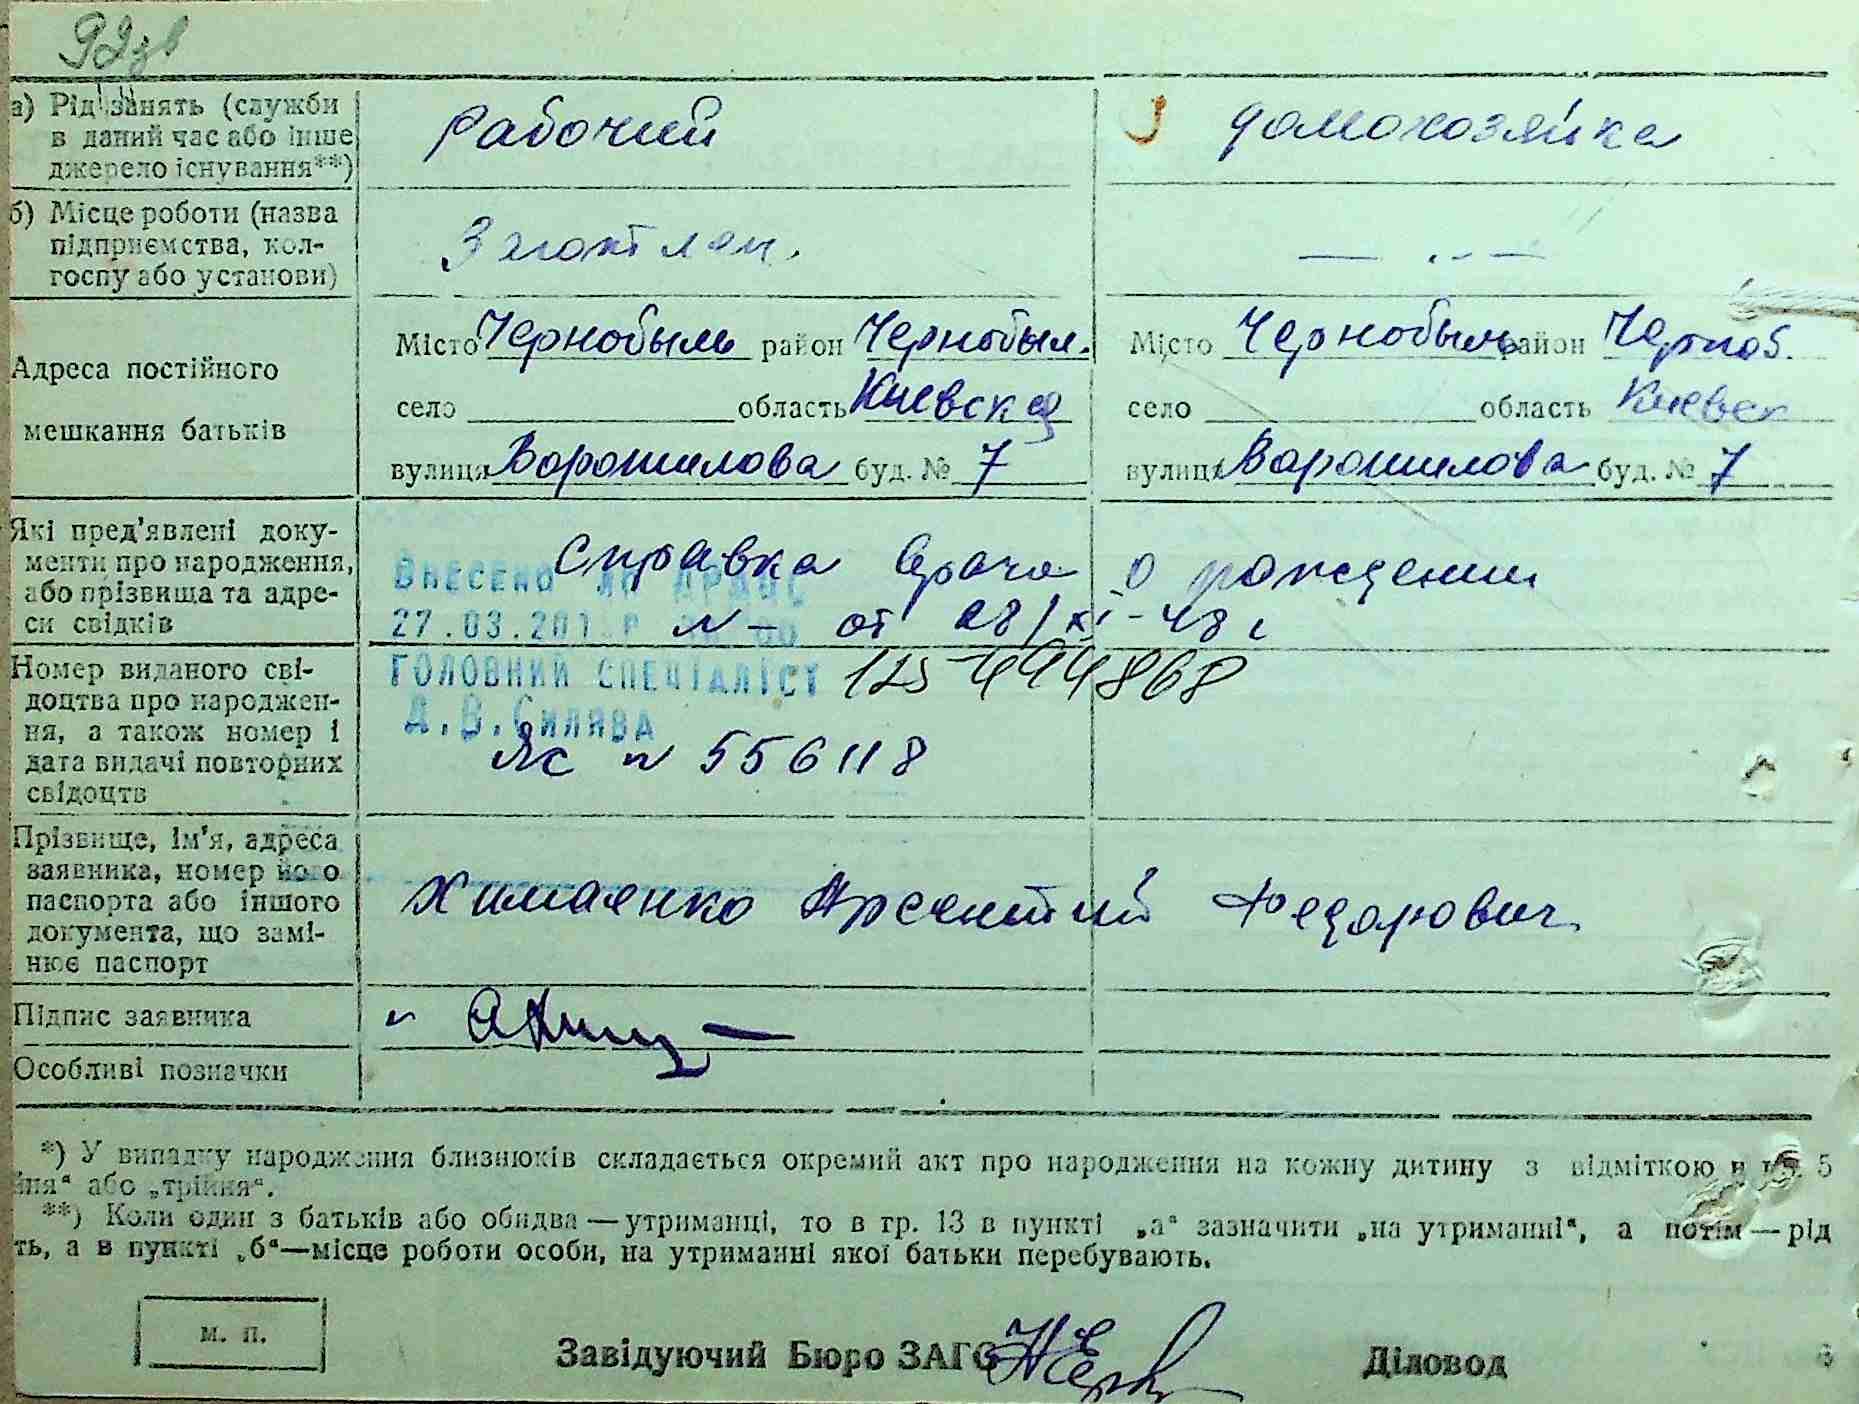 92зв
а) Рід занять (служби
в даний час або інше
джерело існування**)
рабочий
домохозяйка
б) Місце роботи (назва
підприємства, кол-
госпу або установи)
Адреса постійного
мешкання батьків
Місто Чернобыль район Чернобыл.
село область Киевская
вулиця Ворошилова буд. № 7
Місто Чернобыль район Черноб.
село область Киевск
вулиця Ворошилова буд. № 7
Які пред'явлені доку-
менти про народження,
або прізвища та адре-
си свідків
Справка врача о рождении
N — от 28/XI-48 г
ВНЕСЕНО ДО ДРАЦС
27.03.201
ГОЛОВНИЙ СПЕЦІАЛІСТ
Д.В.Силява
Номер виданого сві-
доцтва про народжен-
ня, а також номер і
дата видачі повторних
свідоцтв
444868
ЯС N 556118
Прізвище, ім'я, адреса
заявника, номер його
паспорта або іншого
документа, що замі-
нює паспорт
Химаенко Арсентий Федорович
Підпис заявника
Особливі позначки
*) У випадку народження близнюків складається окремий акт про народження на кожну дитину з відміткою в гр. 5
йня" або „трійня".
**) Коли один з батьків або обидва — утриманці, то в гр. 13 в пункті „а" зазначити „на утриманні", а потім — рід
ть, а в пункті „б"—місце роботи особи, на утриманні якої батьки перебувають.
м. п.
Завідуючий Бюро ЗАГС
Діловод